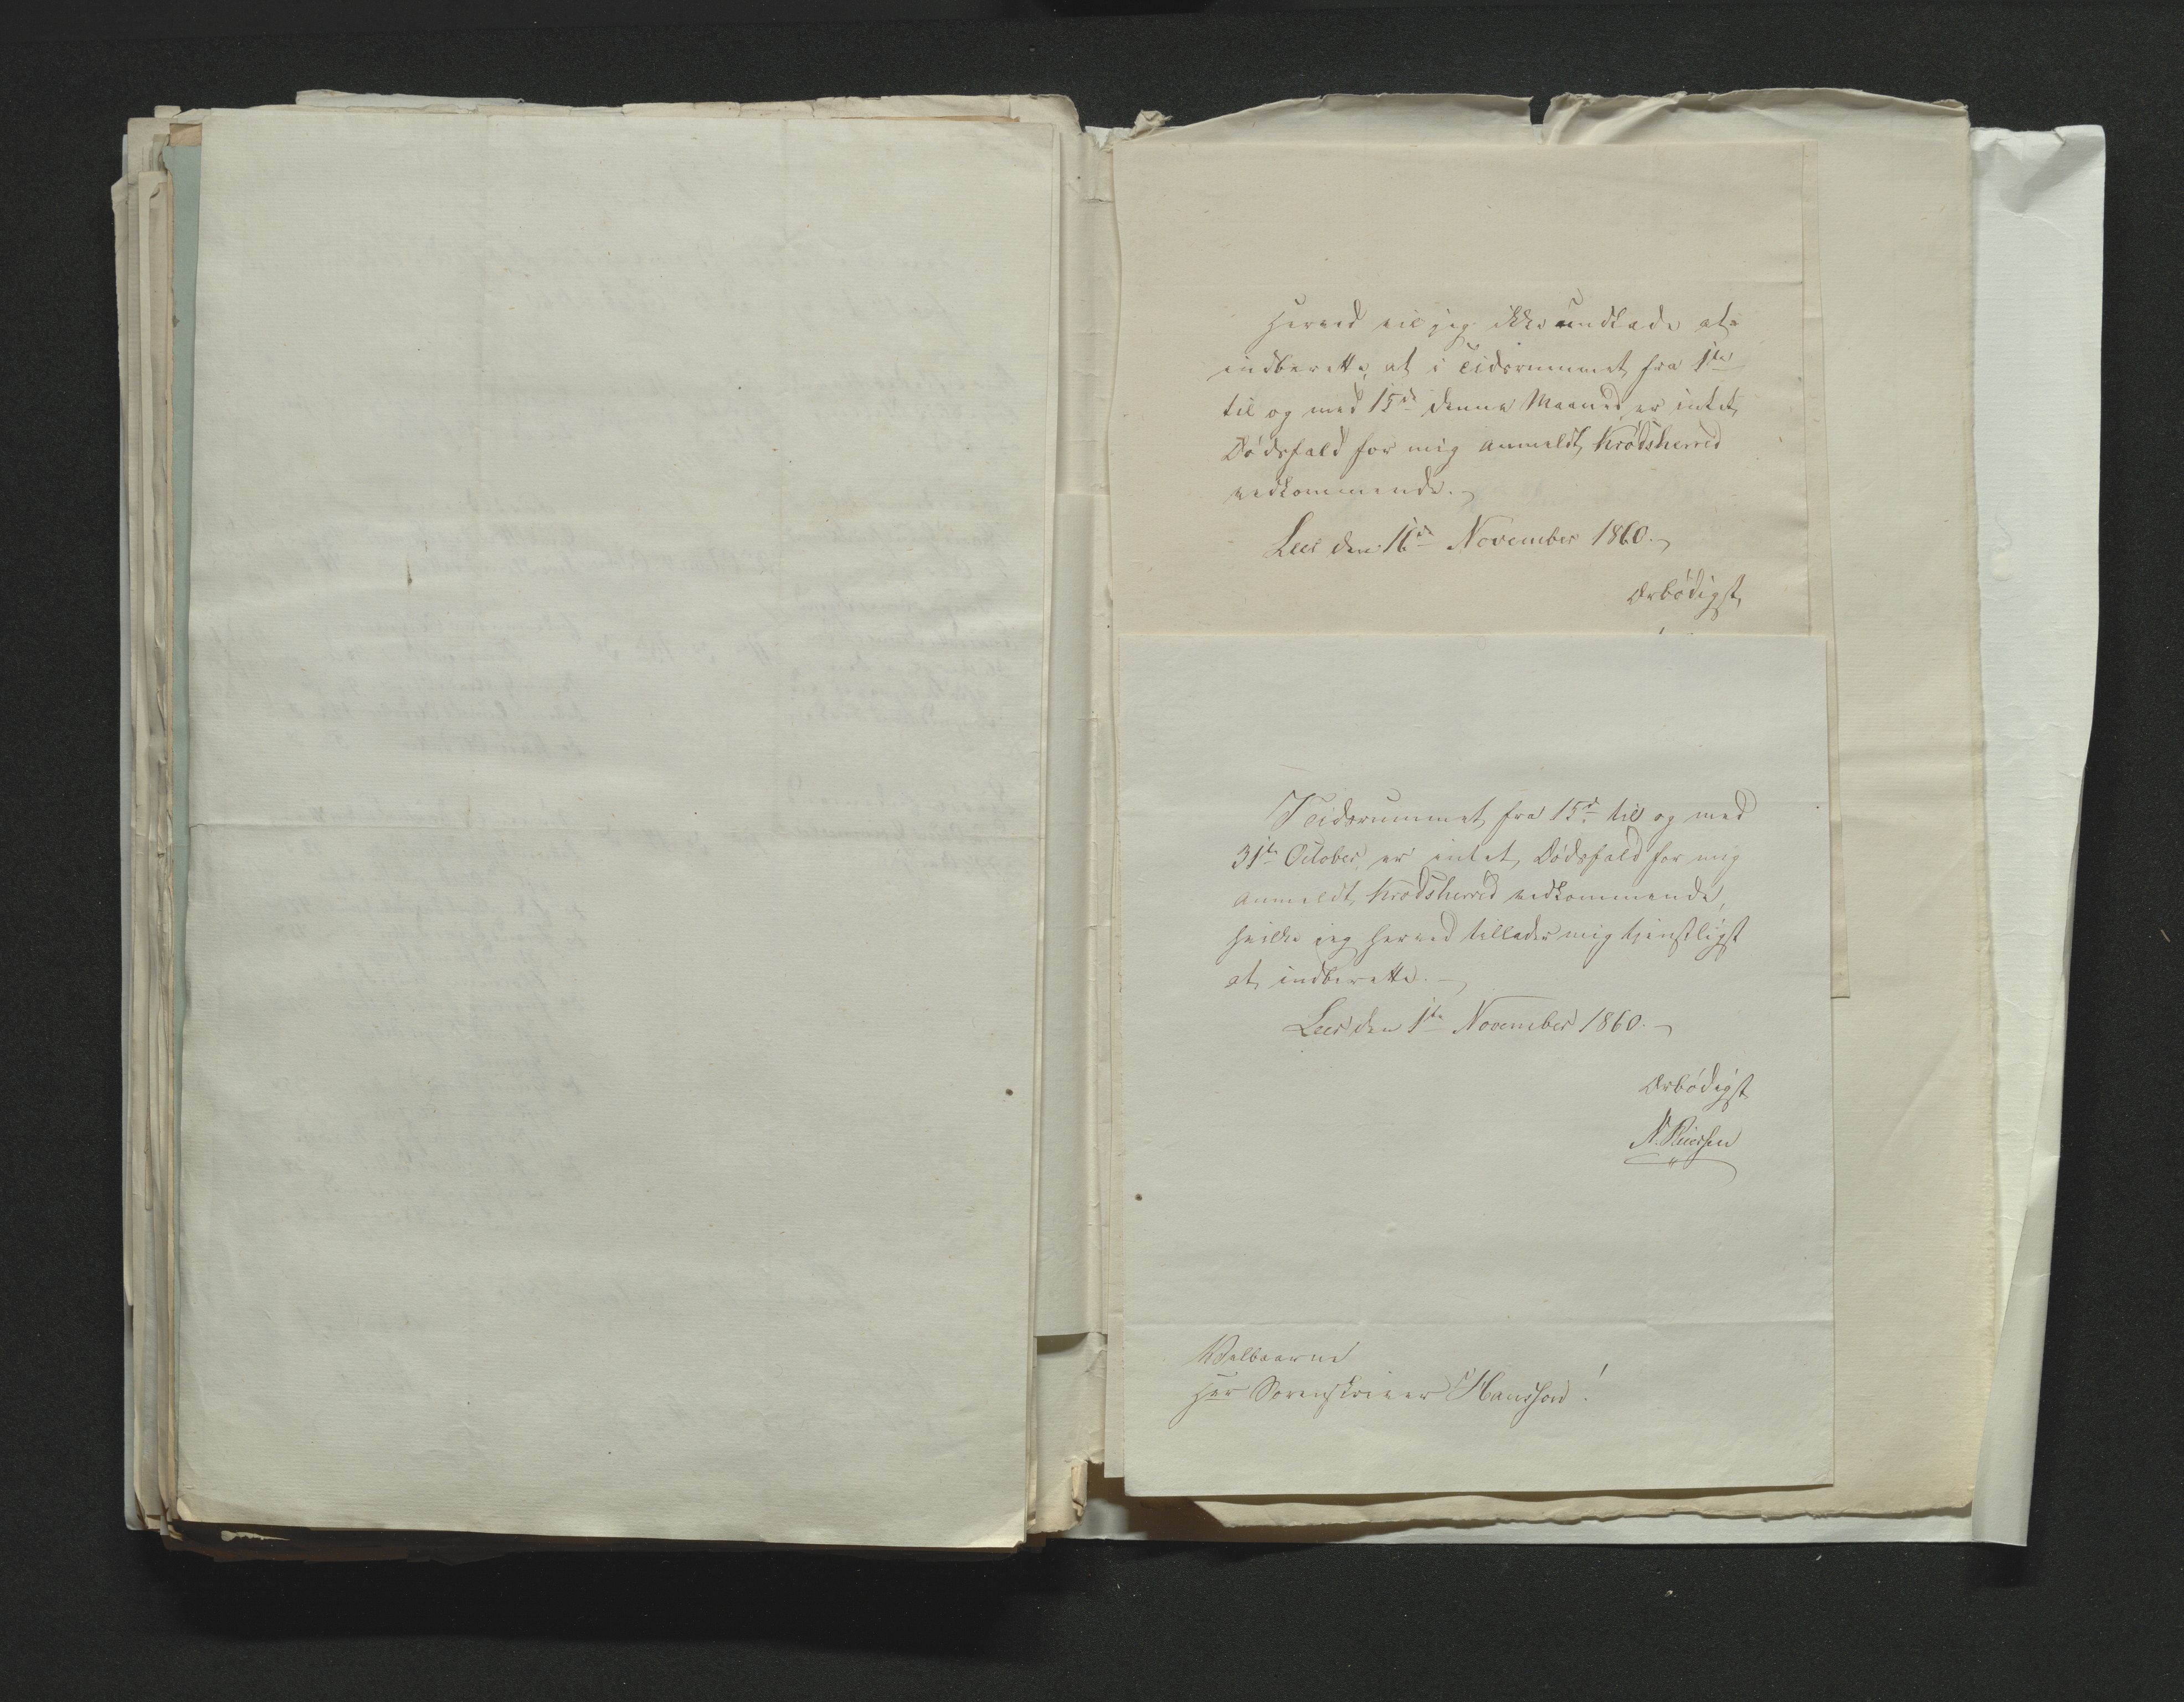 Herved vil jeg ikke undlade at
indberette, at i Tidsrummet fra 1ste
til og med 15de denne Maaned er intet
Dødsfald for mig anmeldt, Krødsherred
vedkommende.
Lees den 16de November 1860.
Ærbødigst
I Tidsrummet fra 15de til og med
31te October er intet Dødsfald for mig
anmeldt, Krødsherred vedkommende,
hvilke jeg herved tillader mig tjenstligst
at indberette.
Lees den 1ste November 1860.
Ærbødigst
N.
Velbaarne
Hr Sorenskriver Hansson!